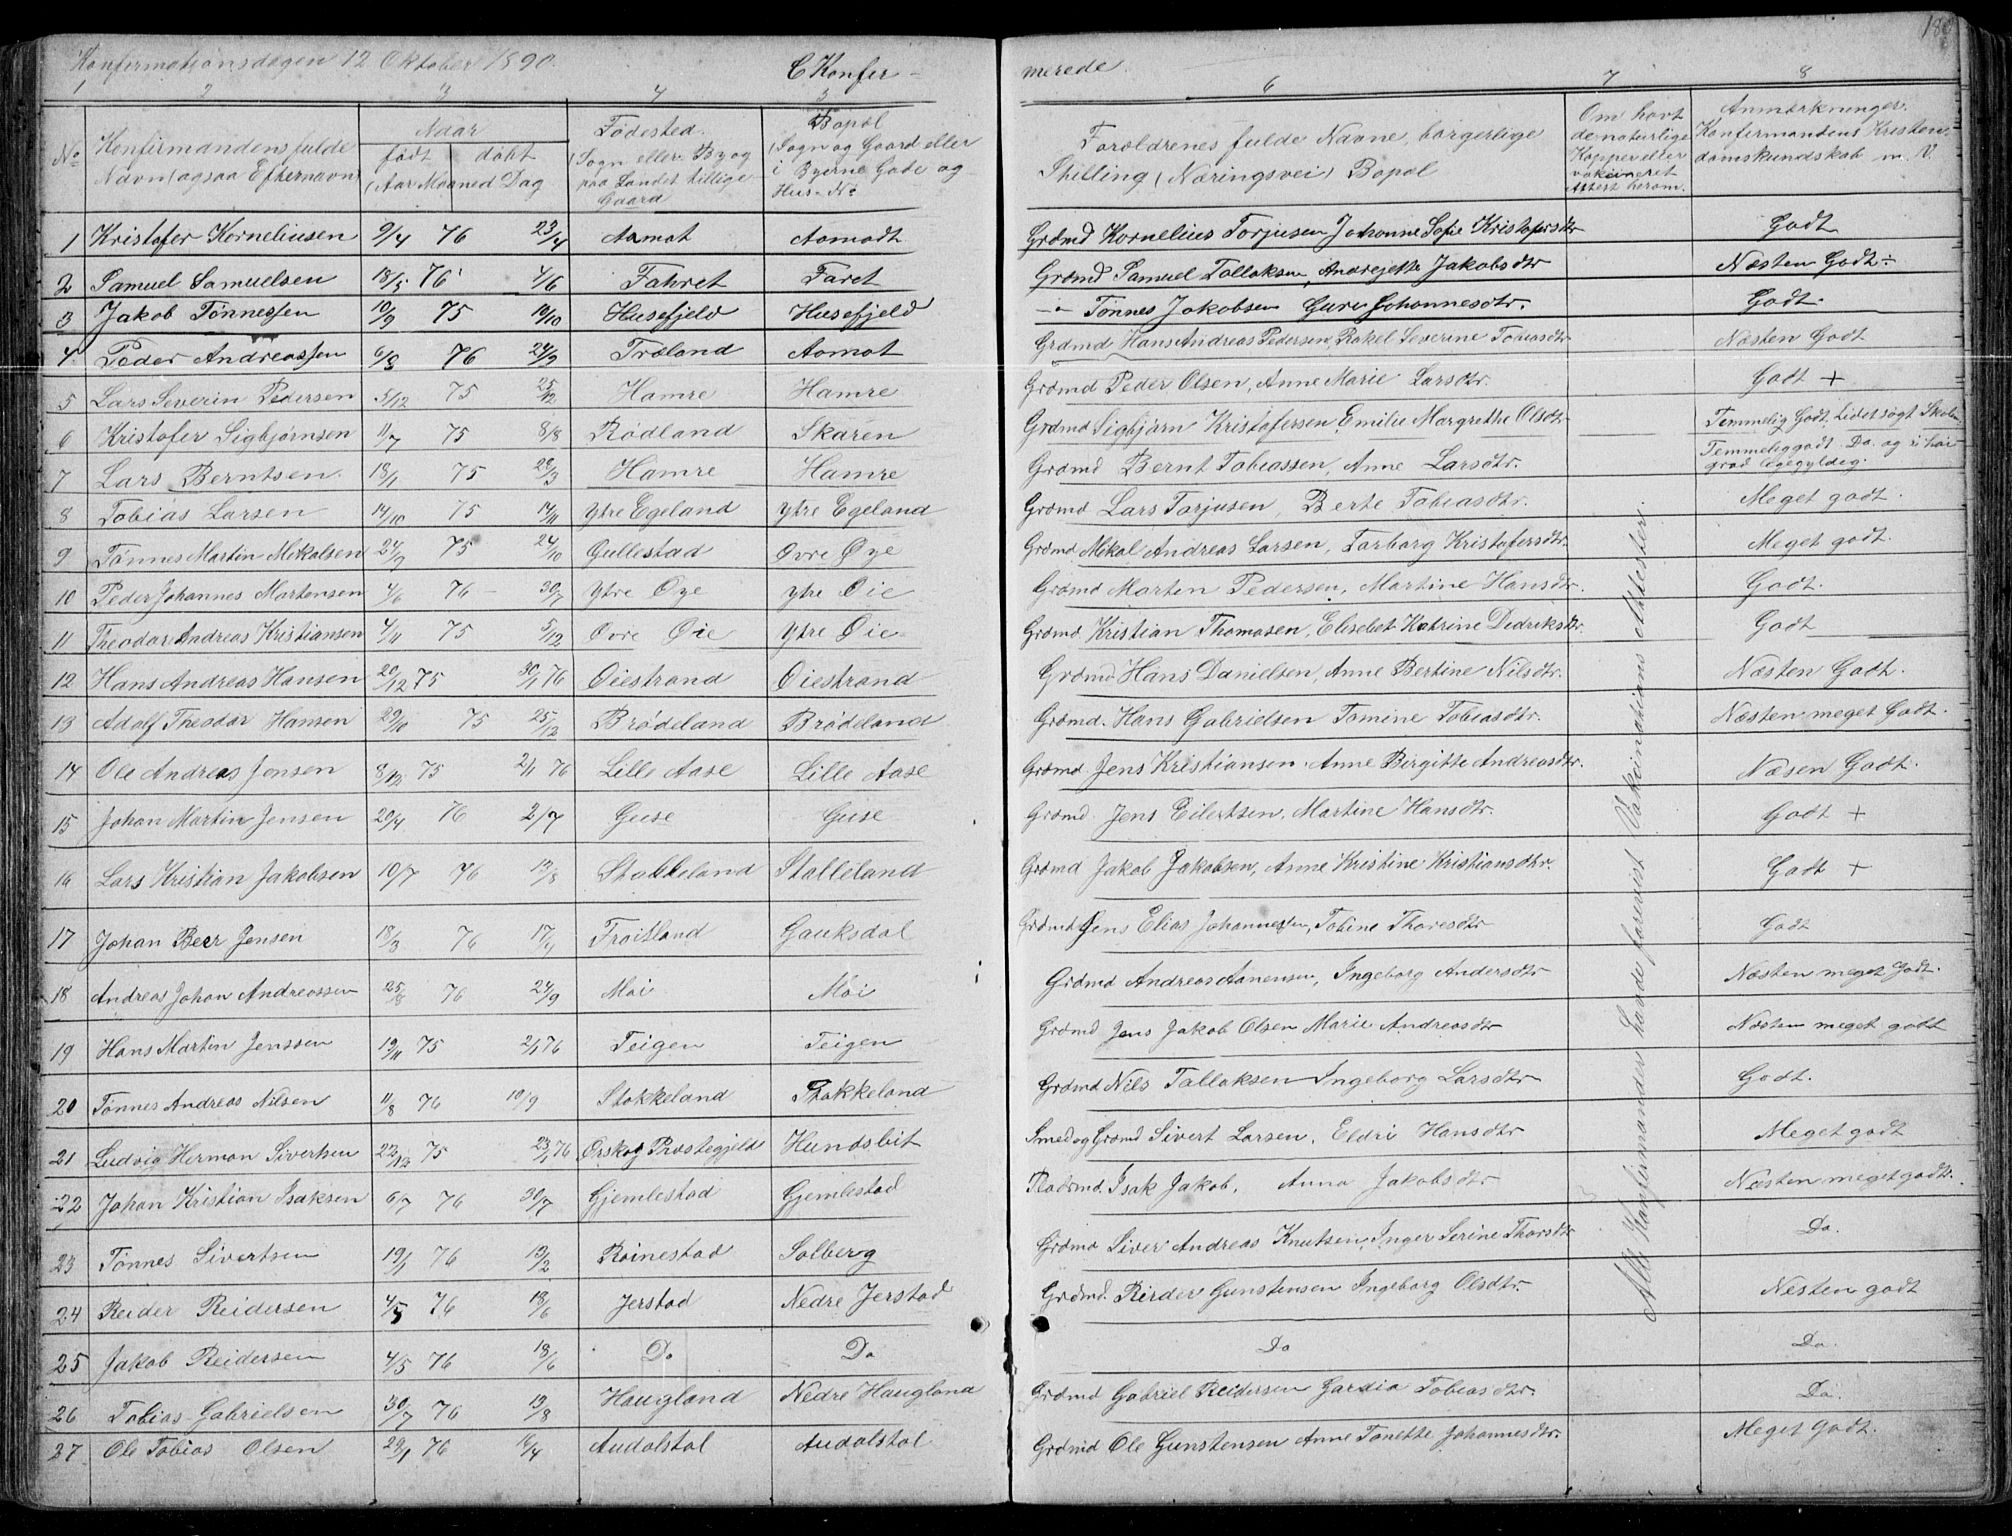 Konfirmationsdagen 12 Oktober 1890. C Konfirmerede.
1 2 3 4 5 6 7 8
No Konfirmandens fulde Navn (ogsaa Efternavn)
Naar født døbt (Aar Maaned Dag
Fødested. (Sogn eller By og paa Landet tillige Gaard
Bopæl (Sogn og Gaard eller i Byerne Gade og Hus-No
Forældrenes fulde Navne, borgerlige Stilling (Næringsvei) Bopæl
Om havt de naturlige Kopper eller vakcineret Attest herom.
Anmærkninger. Konfirmandens Kristendomskundskab m. V.
1 Kristofer Korneliusen 9/4 76 23/4 Aamot Aamodt Grdmd Kornelius Torjusen Johanne Sofie Kristofersdtr Godt
2 Samuel Samuelsen 18/5 76 4/6 Fahret Faret Grdmd Samuel Tallaksen, Andrejette Jakobsdtr Næsten Godt
3 Jakob Tønnessen 10/9 75 10/10 Husefjeld Husefjeld -"- Tønnes Jakobsen Guro Johannesdtr. Godt
4 Peder Andreassen 6/8 76 24/9 Træland Aamot Grdmd Hans Andreas Pedersen, Rakel Severine Tobiasdtr Næsten Godt
5 Lars Severin Pedersen 5/12 75 25/12 Hamre Hamre Grdmd Peder Olsen, Anne Marie Larsdtr. Godt +
6 Kristofer Sigbjørnsen 11/7 75 8/8 Rødland Skaren Grdmd Sigbjørn Kristofersen Emilie Margrethe Olsdtr Temmelig Godt. Lidet søgt Skolen
7 Lars Berntsen 18/1 75 28/3 Hamre Hamre Grdmd Bernt Tobiassen, Anne Larsdtr. Temmeliggodt Do. og i høi grad ligegyldig.
8 Tobias Larsen 14/10 75 14/11 Ytre Egeland Ytre Egeland Grdmd Lars Torjusen, Berte Tobiasdtr. Meget godt.
9 Tønnes Martin Mikalsen 24/9 75 24/10 Gullestad Øvre Øye Grdmd Mikal Andreas Larsen, Torborg Kristofersdtr. Meget godt.
10 Peder Johannes Martensen 4/6 76 30/7 Ytre Øye Ytre Øie Grdmd Marten Pedersen, Martine Hansdtr. Godt.
11 Theodor Andreas Kristiansen 4/11 75 5/12 Øvre Øie Ytre Øie Grdmd Kristian Thomasen, Elisebet Katrine Dedriksdtr. Godt
12 Hans Andreas Hansen 20/12 75 30/1 76 Øiestrand Øiestrand Grdmd Hans Danielsen, Anne Bertine Nilsdtr. Næsten Godt.
13 Adolf Theodor Hansen 29/10 75 25/12 Brødeland Brødeland Grdmd. Hans Gabrielsen Tomine Tobiasdtr. Næsten meget Godt.
14 Ole Andreas Jensen 8/12 75 2/1 76 Lille Aase Lille Aase Grdmd Jens Kristiansen. Anne Birgitte Andreasdtr. Næsen Godt.
15 Johan Martin Jensen 20/4 76 2/7 Guse Guse Grdmd. Jens Eilertsen, Martine Hansdtr. Godt +
16 Lars Kristian Jakobsen 10/7 76 13/8 Stakkeland Stalleland Grdmd Jakob Jakobsen, Anne Kristine Kristiansdtr. Godt +
17 Johan Beer Jensen 18/3 76 17/4 Frøitland Gauksdal Grdmd Jens Elias Johannessen, Tobine Thoresdtr Godt
18 Andreas Johan Andreassen 25/8 76 24/9 Moi Moi Grdmd Andreas Aanensen, Ingeborg Andersdtr Næsten meget Godt.
19 Hans Martin Jenssen 19/11 75 2/1 76 Teigen Teigen Grdmd Jens Jakob Olsen Marie Andreasdtr Næsten meget godt
20 Tønnes Andreas Nilsen 11/8 76 10/9 Stokkeland Stokkeland Grdmd Nils Tallaksen Ingeborg Larsdtr Godt.
21 Ludvig Herman Sivertsen 22/12 75 23/1 76 Ørskog Præstegjeld Hundsbit Smed og Grdmd Sivert Larsen, Eldri Hansdtr Meget godt
22 Johan Kristian Isaksen 6/7 76 30/7 Gjemlestad Gjemlestad Isak Jakob. Anna Jakobsdtr Næsten meget godt.
23 Tønnes Sivertsen 19/1 76 13/2 Røinestad Solberg Grdmd Siver Andreas Knutsen, Inger Serine Thorsdtr Do.
24 Reider Reidersen 4/5 76 18/6 Jerstad Nedre Jerstad Grdmd. Rirder Gunstensen Ingeborg Olsdtr. Næsten godt
25 Jakob Reidersen 4/5 76 18/6 Do Do Do Do.
26 Tobias Gabrielsen 30/7 76 13/8 Haugland Nedre Haugland Grdmd Gabriel Reidersen Gardia Tobiasdtr. Do.
27 Ole Tobias Olsen 29/1 76 16/4 Audalstal Audalstal Grdmd Ole Gunstensen Anne Tonette Johannesdtr. Meget Godt.
Alle Konfirmander havde foreviist Vakcinations Attester.